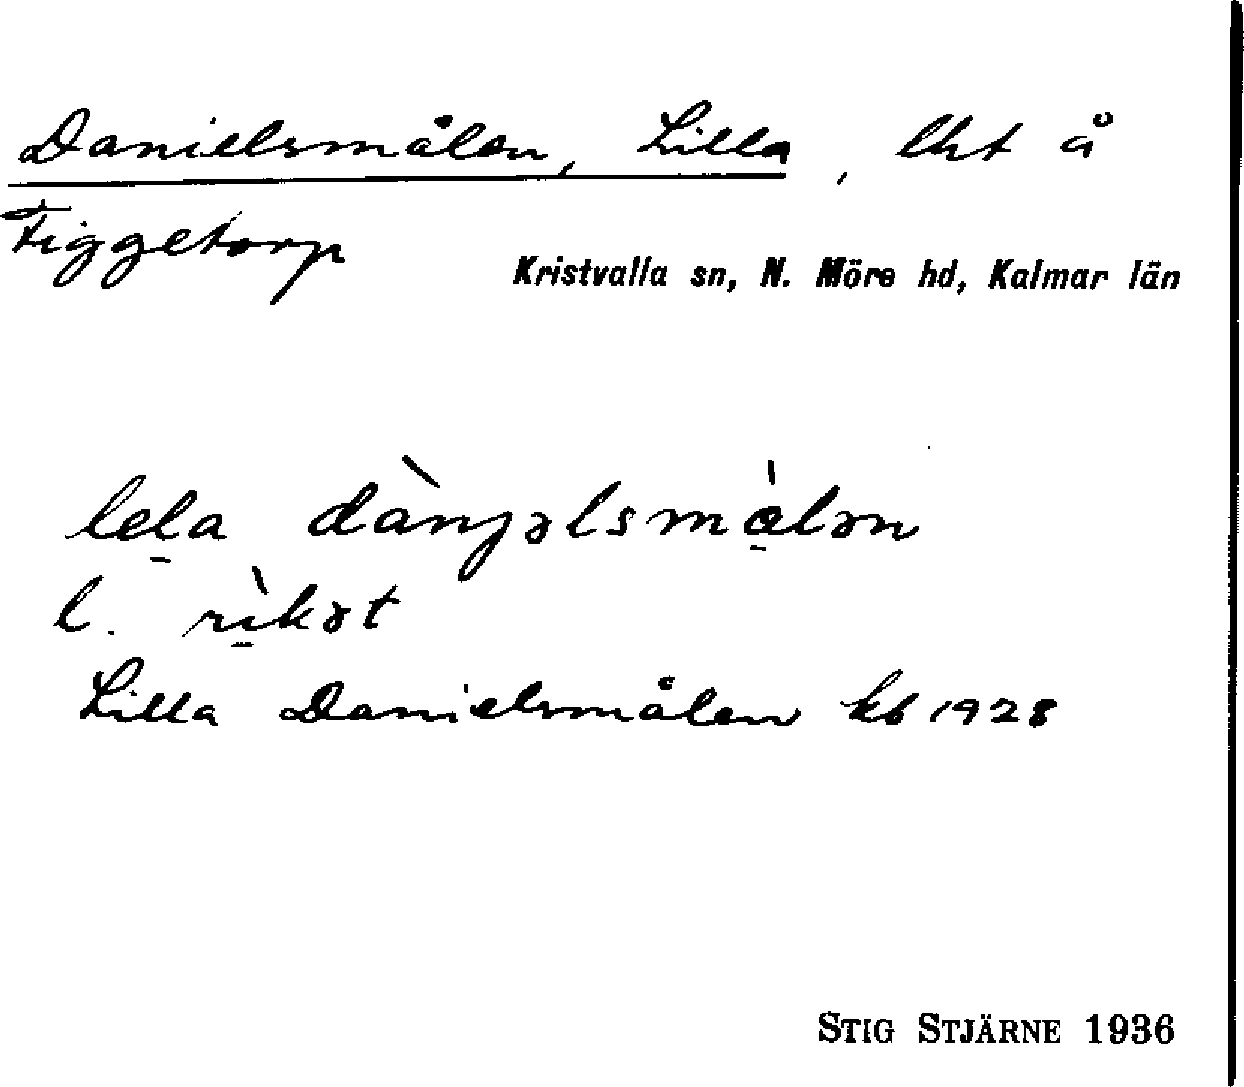 Danielsmålen, Lilla, lht å
Tiggetorp
Kristvalla sn, N. Möre hd, Kalmar län
lela dànjəlsmålən
l. rìkət
Lilla Danielsmålen kb 1928
STIG STJÄRNE 1936